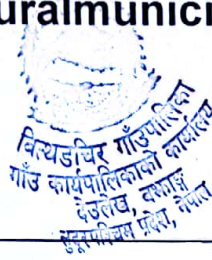 uralmunici
बित्थडचिर गाँउपालिका
गाँउ कार्यपालिकाको कार्यालय
देउलेख, बझाङ्ग
सुदूरपश्चिम प्रदेश, नेपाल